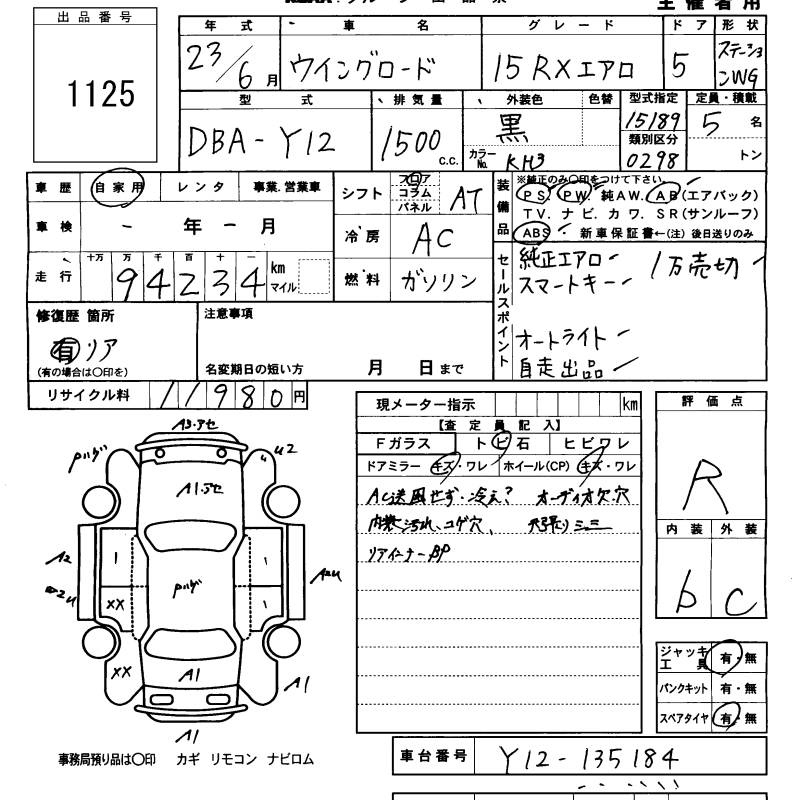 主催者用
出品番号
1125
年式 車名 グレード ドア 形状
23/6月 ウイングロード 15RXエアロ 5 ステーションWG
型式 排気量 外装色 色替 型式指定 定員・積載
DBA-Y12 1500 c.c. 黒 カラーNo. KH3 15189 5名
類別区分
0298 トン
車歴 自家用 レンタ 事業.営業車
車検 - 年 - 月
走行 十万 万 千 百 十 一
94234 km マイル
シフト フロア コラム パネル AT
冷房 AC
燃料 ガソリン
装備品 ※純正のみ○印をつけて下さい。
PS. PW. 純AW. AB(エアバック)
TV. ナビ. カワ. SR(サンルーフ)
ABS 新車保証書←(注)後日送りのみ
セールスポイント
純正エアロ 1万売切
スマートキー
オートライト
自走出品
修復歴 箇所
有 リア
(有の場合は○印を)
注意事項
名変期日の短い方 月 日まで
リサイクル料 11980円
現メーター指示 km
【査定員記入】
Fガラス トビ石 ヒビワレ
ドアミラー キズ・ワレ ホイール(CP) キズ・ワレ
AC送風せず・冷え? オーディオ欠.穴
内装汚れ、コゲ穴、
リアイーナーBP
評価点
R
内装 外装
b C
ジャッキ工具 有・無
パンクキット 有・無
スペアタイヤ 有・無
A3.アセ
Pハゲ
U2
A1.アセ
A2
1
1
Pハゲ
XX
1
XX
A1
A1
A1
事務局預り品は○印 カギ リモコン ナビロム
車台番号 Y12-135184